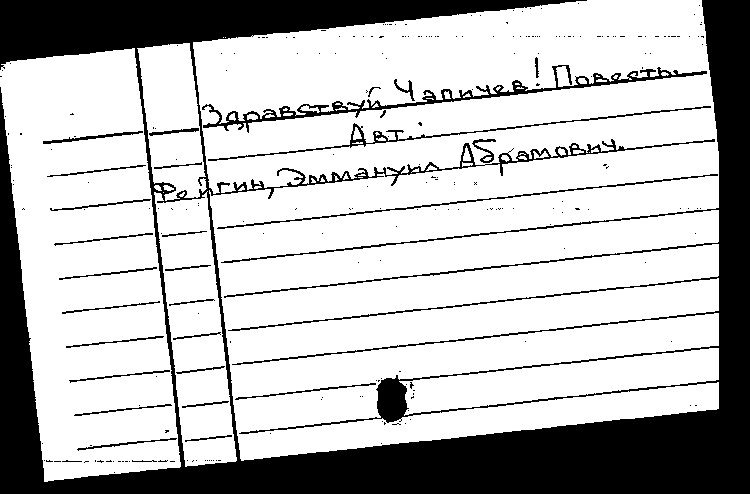 Здравствуй, Чапичев! Повесть.
Авт.:
Фейгин, Эммануил Абрамович.